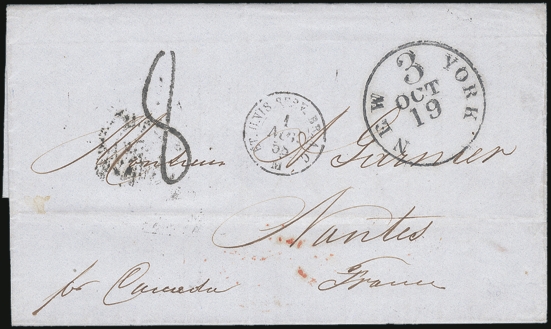 8
NEW YORK
3
OCT
19
Monsieur A Garnier
Nantes
France
pr Canada